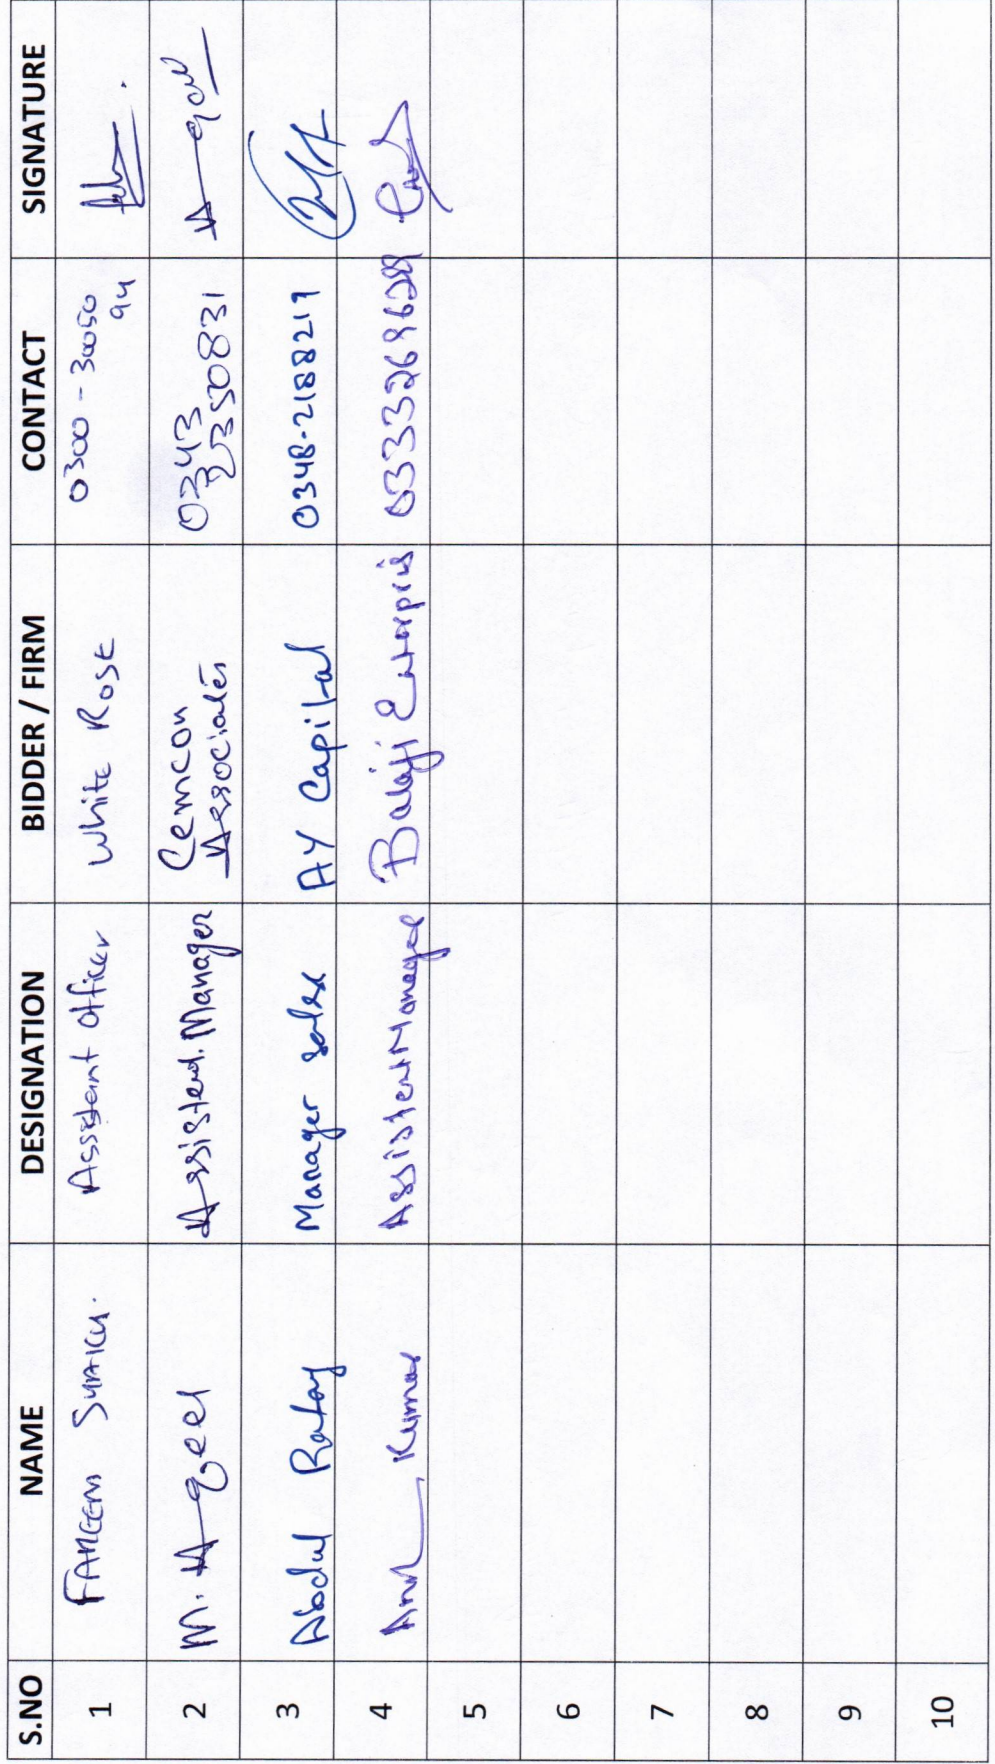 S.NO NAME DESIGNATION BIDDER / FIRM CONTACT SIGNATURE
1 FAHEEM SHAIKH. Assistant Officer White Rose 0300-30050
94
2 M. Aqeel Assistent. Manager Cemcon 0343
Associates 2350831
3 Abdul Rafay Manager sales AY Capital 0348-2188219
4 Kumar Assistent Manager Balaji Enterpris 03332696289
5
6
7
8
9
10